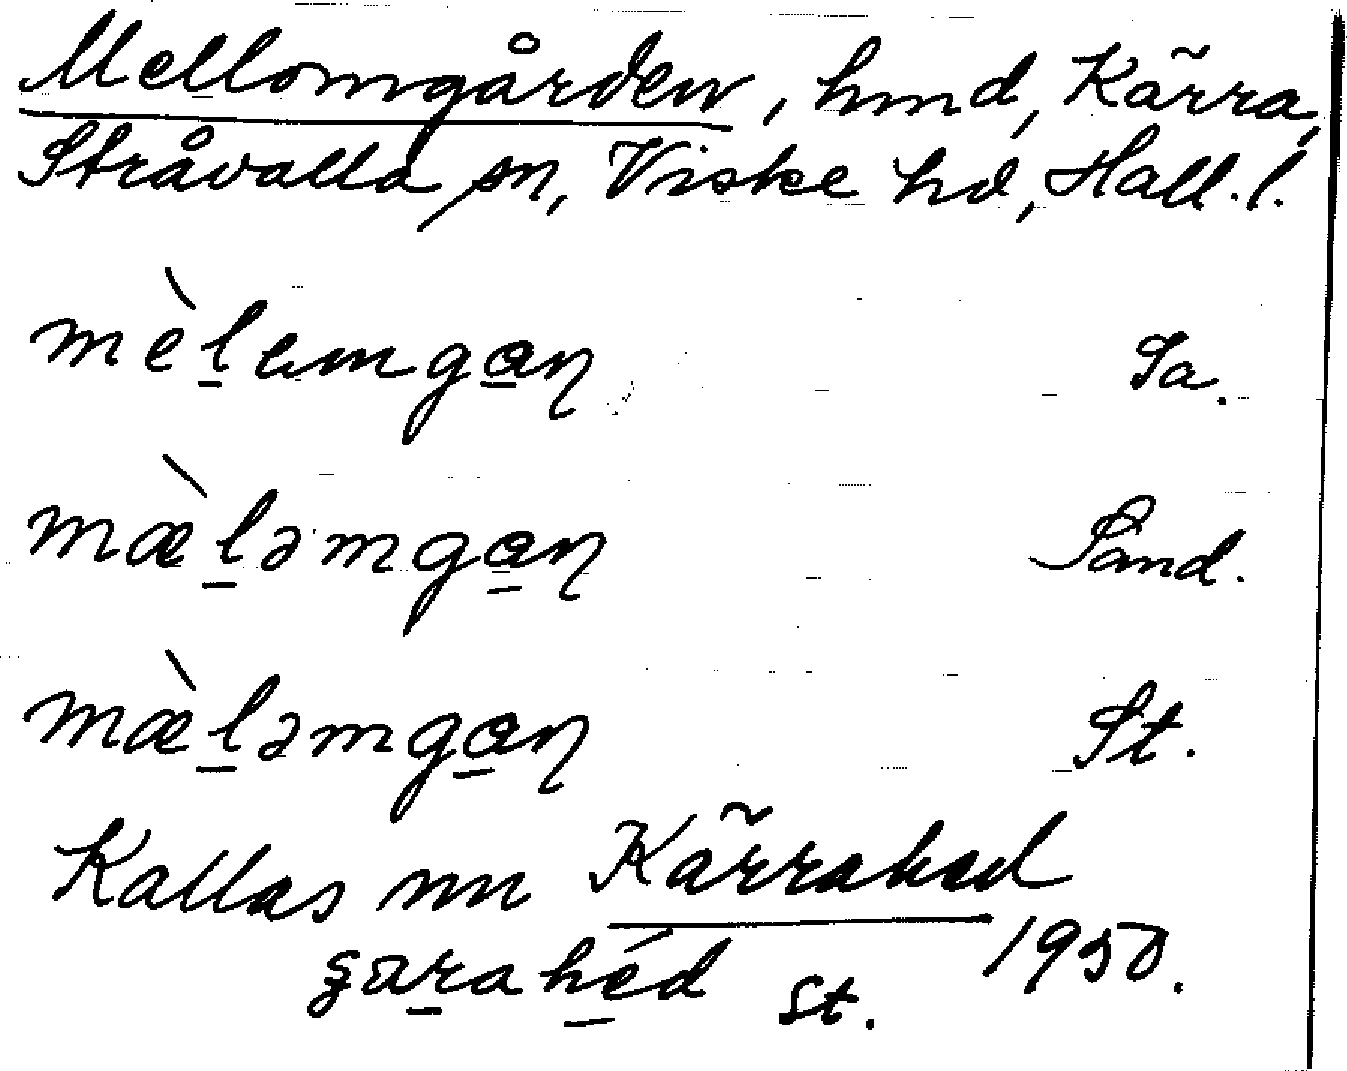 Mellomgården, hmd, Kärra,
Stråvalla sn, Viske hd, Hall. l.
mèl̲emga̲ŋ Sa.
mæ̀l̲əmga̲ŋ Sand.
mæ̀l̲əmga̲ŋ St.
Kallas nu Kärrahed
hé̲d St. 1950.